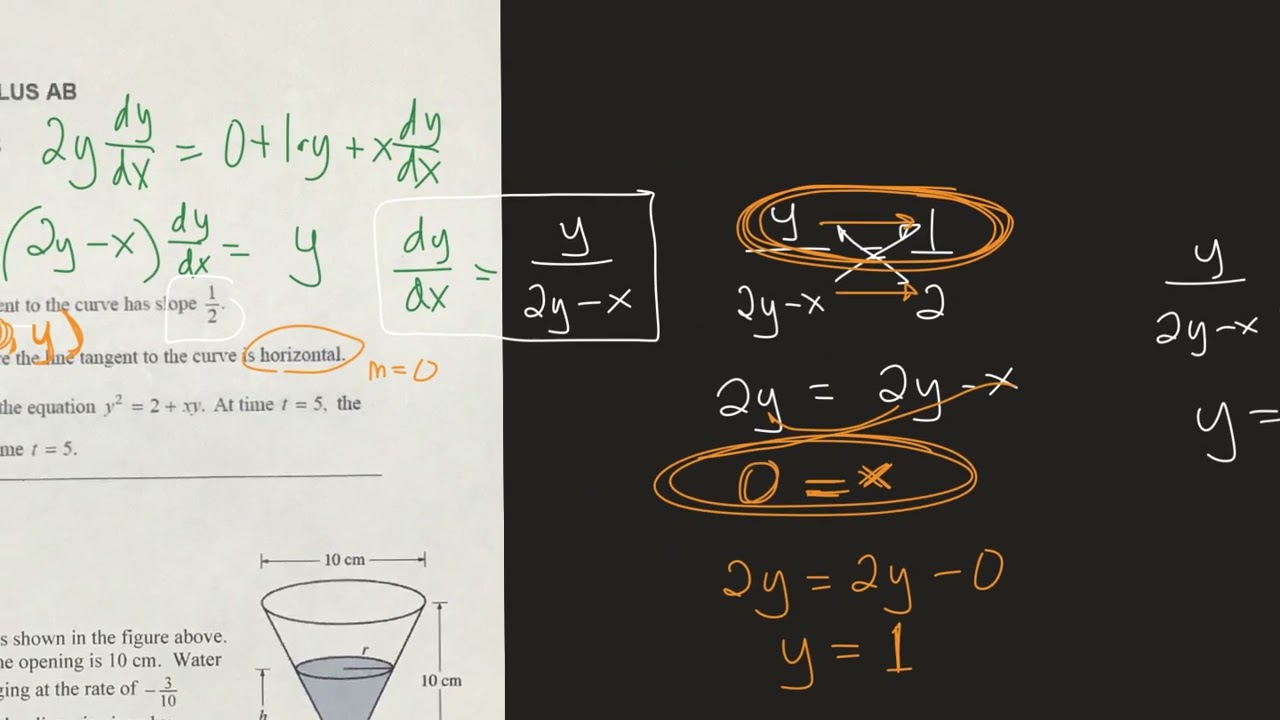 LUS AB
2y dy/dx = 0 + 1·y + x dy/dx
(2y - x) dy/dx = y
dy/dx = y/(2y - x)
ent to the curve has slope 1/2.
, y)
e the line tangent to the curve is horizontal.
m = 0
the equation y² = 2 + xy. At time t = 5, the
me t = 5.
10 cm
s shown in the figure above.
ne opening is 10 cm. Water
ging at the rate of -3/10
r
10 cm
h
y/(2y - x) = 1/2
2y = 2y - x
0 = x
2y = 2y - 0
y = 1
y/(2y - x)
y =